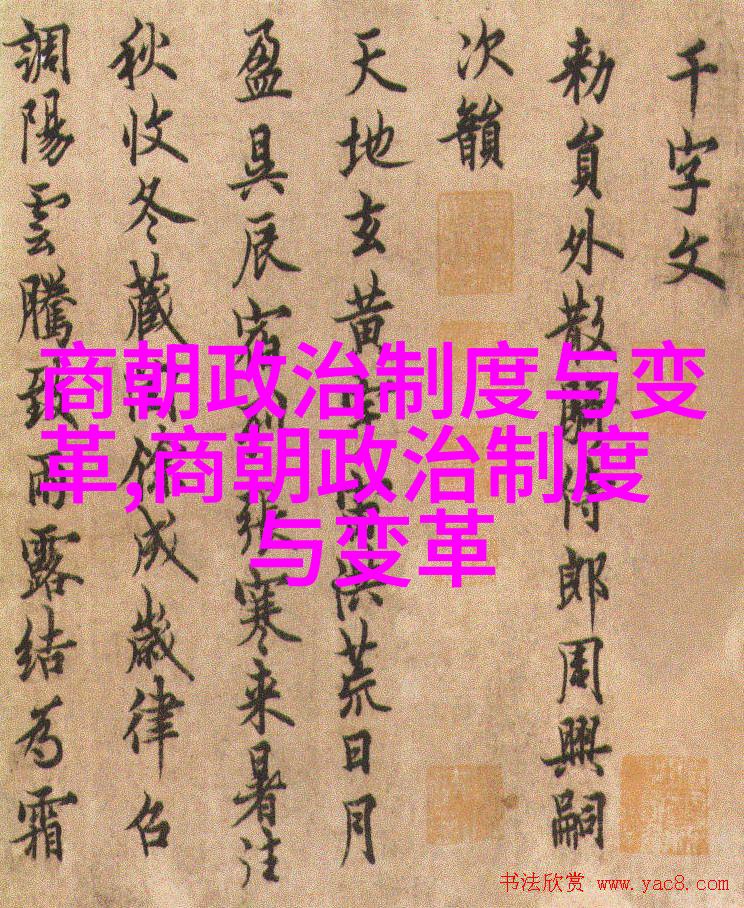 千字文
勑員外散騎侍郎周興嗣
次韻
天地玄黄洪荒日月
盈昃辰宿張寒来暑往
秋收冬蔵餘成歲律召
調陽雲騰致雨露結為霜
商朝政治制度与变
革,商朝政治制度
与变革
书法欣赏 www.yac8.com